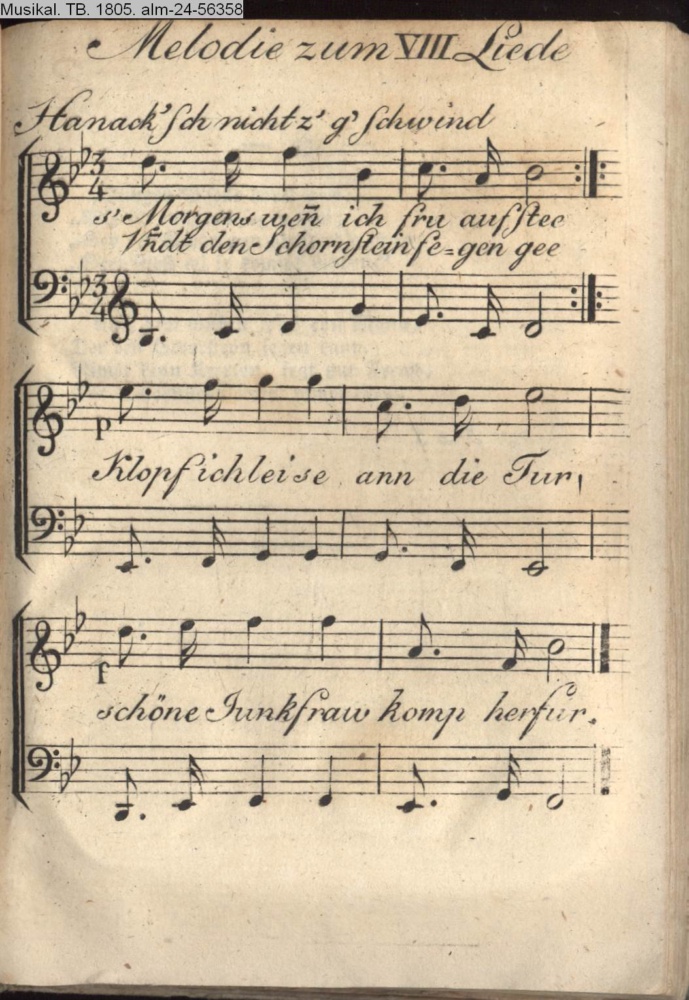 Musikal. TB. 1805. alm-24-56358
Melodie zum VIII Liede
Hanack'sch nicht z' g'schwind
3
4
s' Morgens weñ ich fru aufstee
Vñdt den Schornstein fe=gen gee
3
4
p
Klopf ich leise ann die Tur,
f
schöne Junkfraw komp herfur.